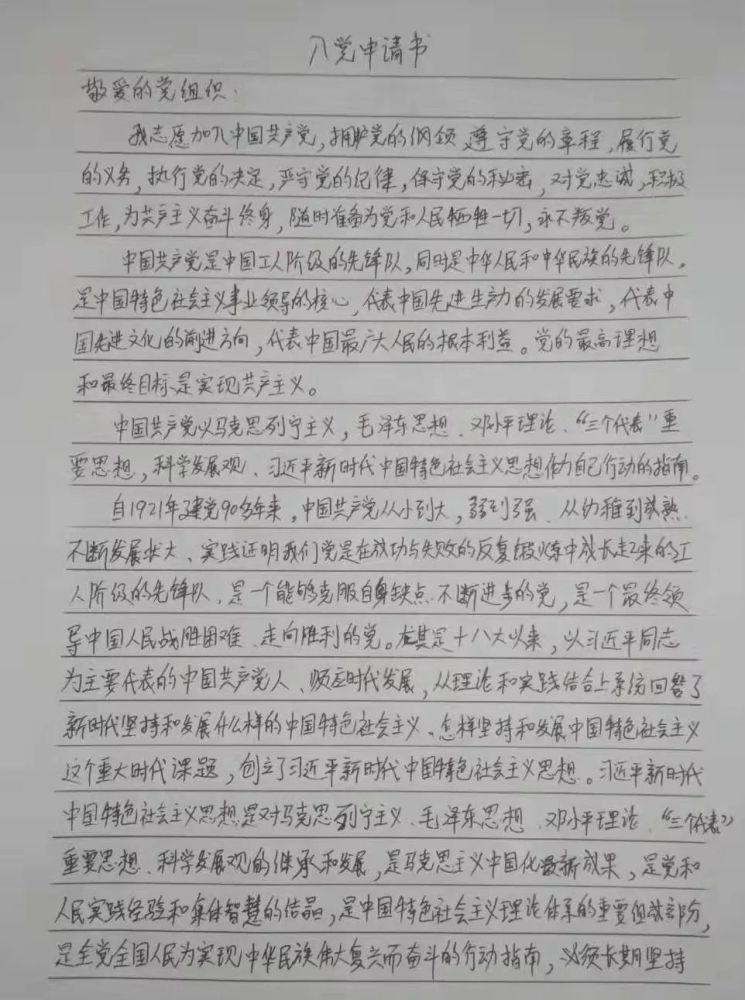 入党申请书
敬爱的党组织:
我志愿加入中国共产党,拥护党的纲领、遵守党的章程,履行党
的义务,执行党的决定,严守党的纪律,保守党的秘密,对党忠诚,积极
工作,为共产主义奋斗终身,随时准备为党和人民牺牲一切,永不叛党。
中国共产党是中国工人阶级的先锋队,同时是中华人民和中华民族的先锋队,
是中国特色社会主义事业领导的核心,代表中国先进生产力的发展要求,代表中
国先进文化的前进方向,代表中国最广大人民的根本利益。党的最高理想
和最终目标是实现共产主义。
中国共产党以马克思列宁主义,毛泽东思想、邓小平理论、“三个代表”重
要思想,科学发展观、习近平新时代中国特色社会主义思想作为自己行动的指南。
自1921年建党90多年来,中国共产党从小到大,弱到强、从幼稚到成熟、
不断发展壮大、实践证明我们党是在成功与失败的反复锻炼中成长走过来的工
人阶级的先锋队、是一个能够克服自身缺点、不断进步的党,是一个最终领
导中国人民战胜困难、走向胜利的党。尤其是十八大以来,以习近平同志
为主要代表的中国共产党人、顺应时代发展,从理论和实践结合上系统回答了
新时代坚持和发展什么样的中国特色社会主义、怎样坚持和发展中国特色社会主义
这个重大时代课题,创立了习近平新时代中国特色社会主义思想。习近平新时代
中国特色社会主义思想是对马克思列宁主义、毛泽东思想、邓小平理论、“三个代表”
重要思想、科学发展观的继承和发展,是马克思主义中国化最新成果,是党和
人民实践经验和集体智慧的结晶,是中国特色社会主义理论体系的重要组成部分,
是全党全国人民为实现中华民族伟大复兴而奋斗的行动指南,必须长期坚持